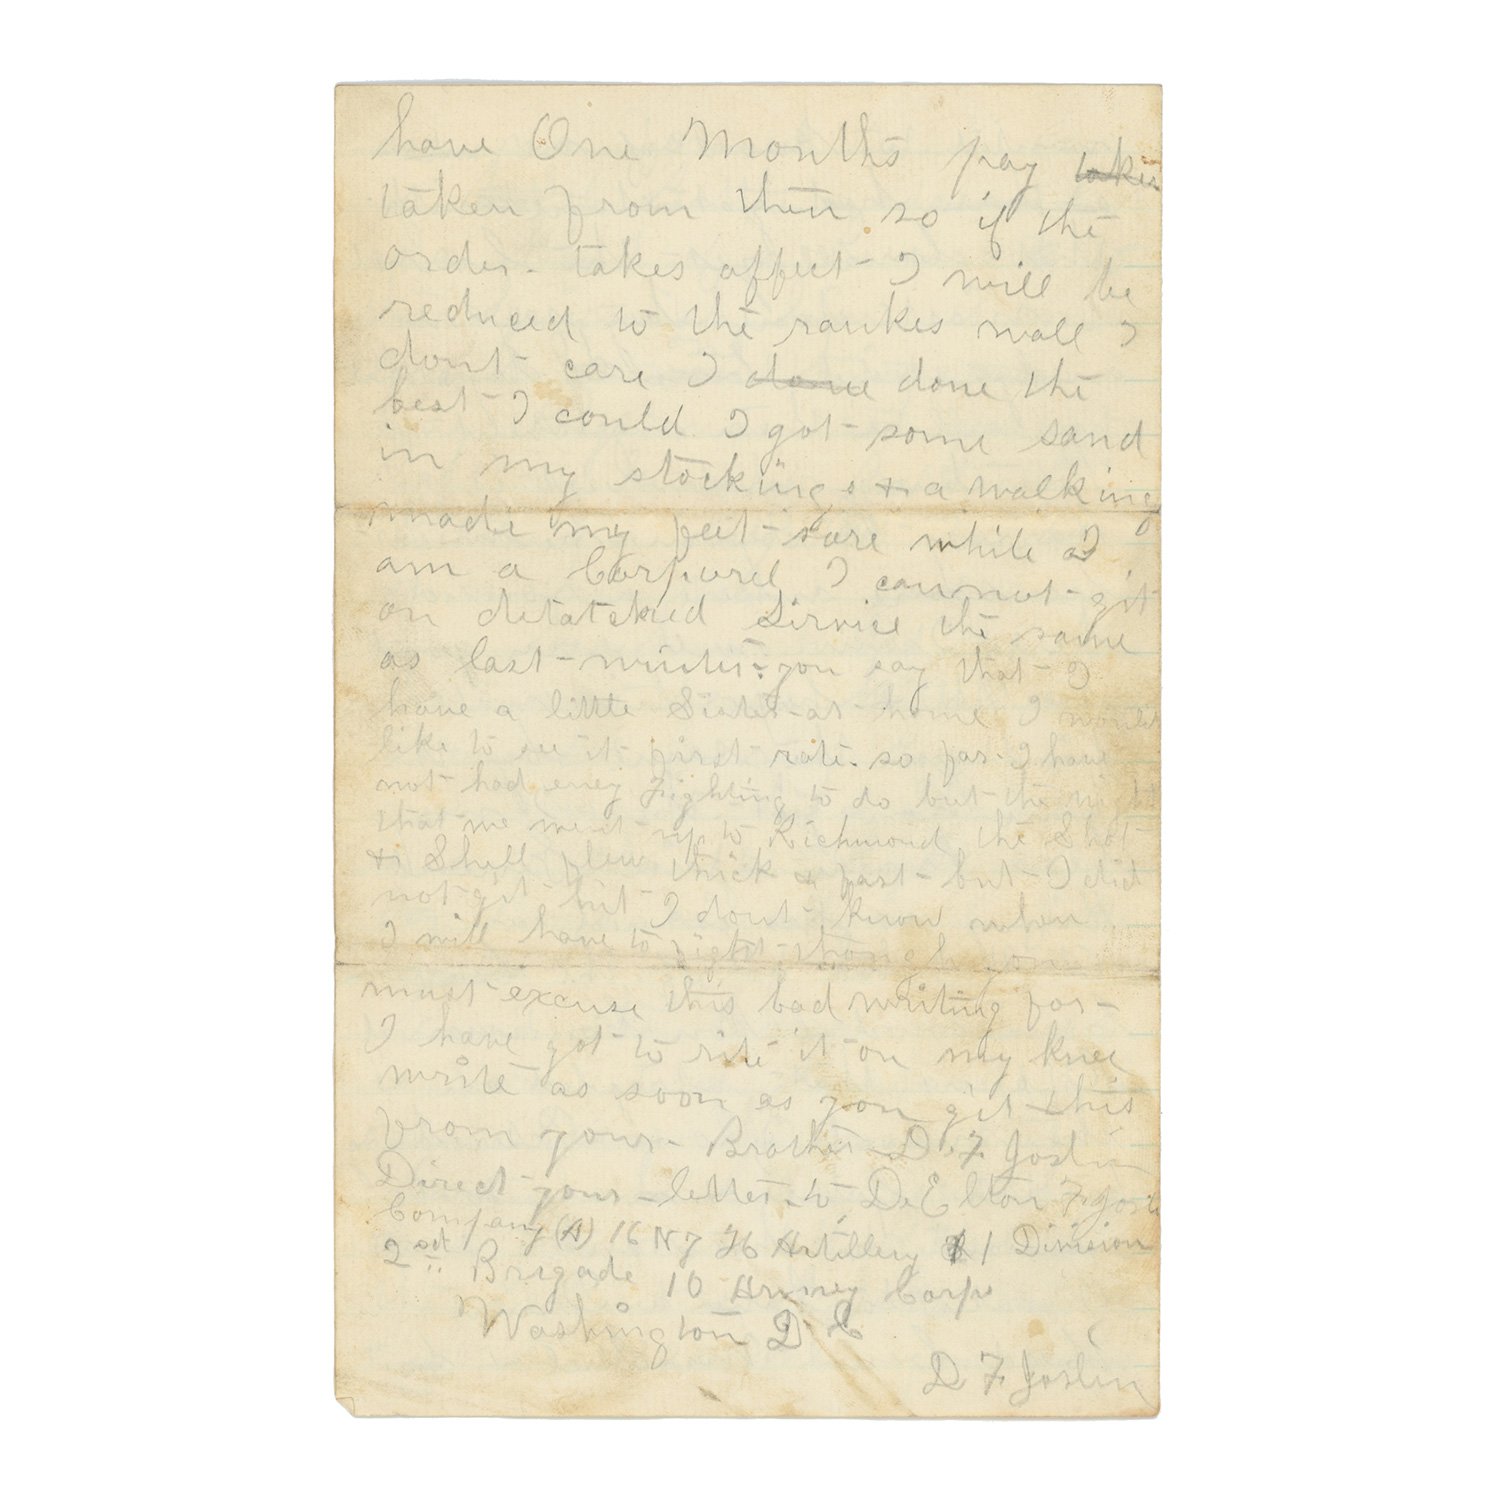 have One Months pay taken
taken from them so if the
order takes affect I will be
reduced to the rankes wall I
dont care I done done the
best I could I got some sand
in my stockings & a walking
made my feet sore while I
am a Corporel I cannot git
on detatched Service the same
as last winter you say that I
have a little Sister at home I would
like to see it first rate. so far I have
not had eney Fighting to do but the night
that we went up to Richmond the Shot
& Shell flew thick & fast but I did
not git hit I dont know when
I will have to fight though you
must excuse this bad writing for
I have got to rite it on my knee
write as soon as you git this
from your Brother D. F Joslin
Direct your letter to DeElton F Josl
Company (A) 16 N Y H Artillery 1 Division
2nd Brigade 10 Armey Corps
Washington D C
D F Joslin